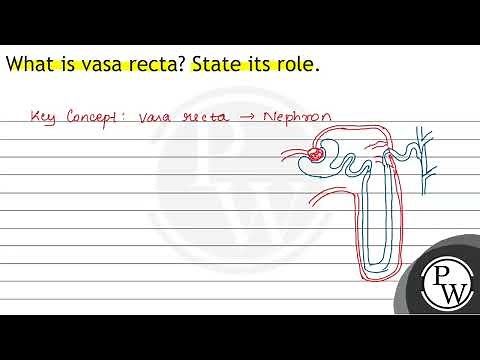 What is vasa recta? State its role.
Key Concept: vasa recta → Nephron
P
W
P
W